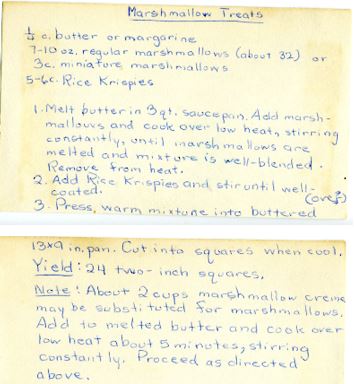 Marshmallow Treats
¼ c. butter or margarine
7-10 oz. regular marshmallows (about 32) or
3c. miniature marshmallows
5-6c. Rice Krispies
1. Melt butter in 3 qt. saucepan. Add marsh-
mallows and cook over low heat, stirring
constantly, until marshmallows are
melted and mixture is well-blended.
Remove from heat.
2. Add Rice Krispies and stir until well-
coated.
(over)
3. Press, warm mixture into buttered
13x9 in. pan. Cut into squares when cool.
Yield: 24 two-inch squares.
Note: About 2 cups marshmallow creme
may be substituted for marshmallows.
Add to melted butter and cook over
low heat about 5 minutes, stirring
constantly. Proceed as directed
above.